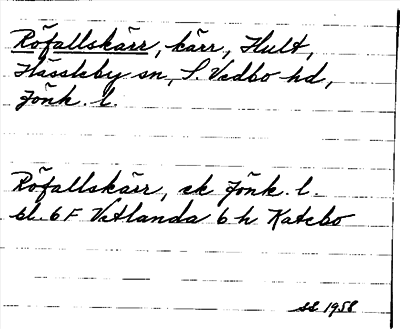 Röfallskärr, kärr, Hult,
Hässleby sn, S. Vedbo hd,
Jönk. l.
Röfallskärr, ek Jönk. l.
bl. 6 F Vetlanda 6 h Katebo
SS 1958